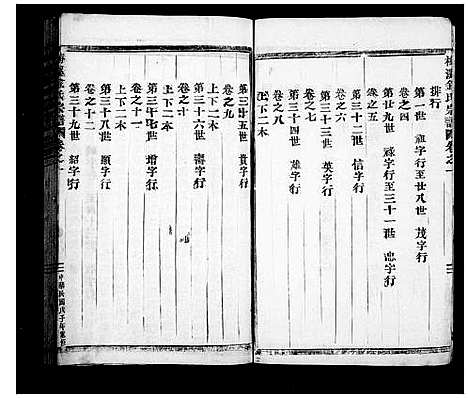 梅溪金氏宗譜卷之一
排行
第一世 祖字行至廿八世 茂字行
卷之四
第廿九世 祿字行至三十一世 忠字行
卷之五
第三十二世 信字行
卷之六
第三十三世 英字行
卷之七
第三十四世 雄字行
卷之八
上下二本
第三十五世 貴字行
卷之九
上下二本
第三十六世 喬字行
卷之十
上下二本
第三十七世 增字行
卷之十一
第三十八世 顯字行
卷之十二
第三十九世 紹字行
宗譜 卷之一
中華民國戊子年重修